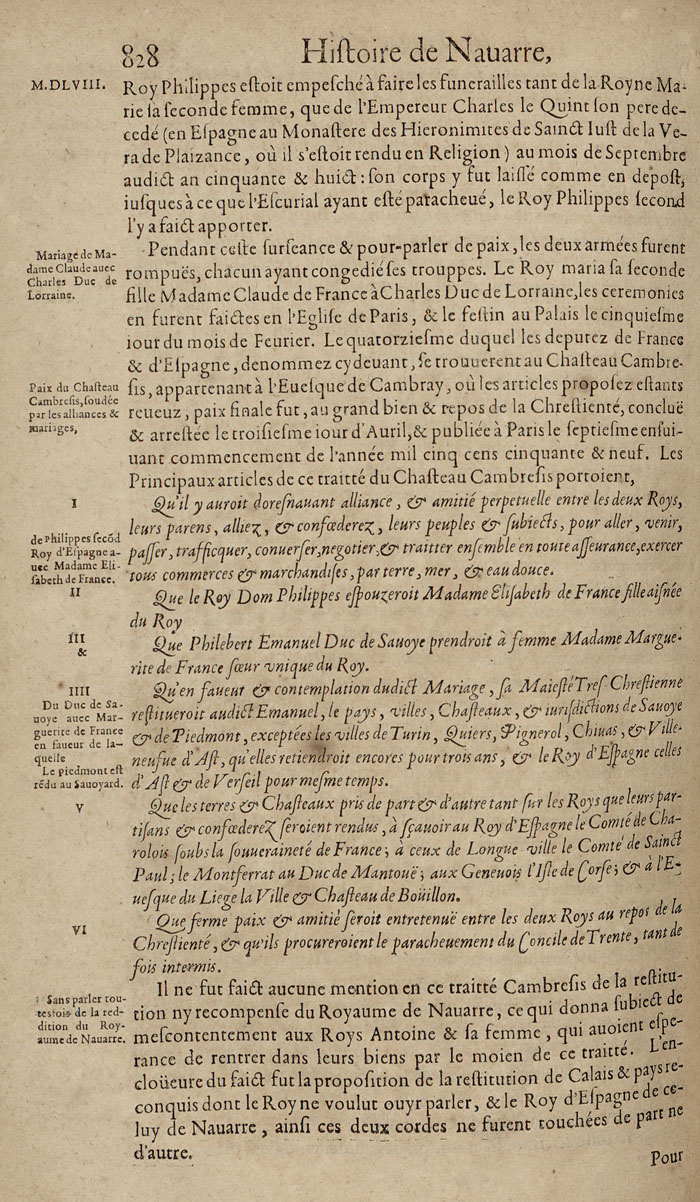 828 Hiſtoire de Nauarre,
M.DLVIII.
Roy Philippes eſtoit empeſché à faire les funerailles tant de la Royne Ma-
rie ſa ſeconde femme, que de l'Empereur Charles le Quint ſon pere de-
cedé (en Eſpagne au Monaſtere des Hieronimites de Sainct Iuſt de la Ve-
ra de Plaizance, où il s'eſtoit rendu en Religion) au mois de Septembre
audict an cinquante & huict : ſon corps y fut laiſſé comme en depoſt,
iuſques à ce que l'Eſcurial ayant eſté paracheué, le Roy Philippes ſecond
l'y a faict apporter.
Mariage de Ma-
dame Claude auec
Charles Duc de
Lorraine.
Pendant ceſte ſurſeance & pour-parler de paix, les deux armées furent
rompuës, chacun ayant congedié ſes trouppes. Le Roy maria ſa ſeconde
fille Madame Claude de France à Charles Duc de Lorraine, les ceremonies
en furent faictes en l'Egliſe de Paris, & le feſtin au Palais le cinquieſme
iour du mois de Feurier. Le quatorzieſme duquel les deputez de France
& d'Eſpagne, denommez cy deuant, ſe trouuerent au Chaſteau Cambre-
ſis, appartenant à l'Eueſque de Cambray, où les articles propoſez eſtants
reueuz, paix finale fut, au grand bien & repos de la Chreſtienté, concluë
& arreſtée le troiſieſme iour d'Auril, & publiée à Paris le ſeptieſme enſui-
uant commencement de l'année mil cinq cens cinquante & neuf. Les
Principaux articles de ce traitté du Chaſteau Cambreſis portoient,
Paix du Chaſteau
Cambreſis, ſoudée
par les alliances &
mariages,
I
Qu'il y auroit doreſnauant alliance, & amitié perpetuelle entre les deux Roys,
leurs parens, alliez, & confœderez, leurs peuples & ſubiects, pour aller, venir,
paſſer, trafficquer, conuerſer, negotier, & traitter enſemble en toute aſſeurance, exercer
tous commerces & marchandiſes, par terre, mer, & eau douce.
de Philippes ſecõd
Roy d'Eſpagne a-
uec Madame Eli-
ſabeth de France.
II
Que le Roy Dom Philippes eſpouzeroit Madame Eliſabeth de France fille aiſnée
du Roy
III
&
Que Philebert Emanuel Duc de Sauoye prendroit à femme Madame Margue-
rite de France ſœur vnique du Roy.
IIII
Du Duc de Sa-
uoye auec Mar-
guerite de France
en faueur de la-
quelle
Le piedmont eſt
rẽdu au Sauoyard.
Qu'en faueur & contemplation dudict Mariage, ſa Maieſté Treſ-Chreſtienne
reſtitueroit audict Emanuel, le pays, villes, Chaſteaux, & iuriſdictions de Sauoye
& de Piedmont, exceptées les villes de Turin, Quiers, Pignerol, Chiuas, & Ville-
neufue d'Aſt, qu'elles retiendroit encores pour trois ans, & le Roy d'Eſpagne celles
d'Aſt & de Verſeil pour meſme temps.
V
Que les terres & Chaſteaux pris de part & d'autre tant ſur les Roys que leurs par-
tiſans & confœderez ſeroient rendus, à ſçauoir au Roy d'Eſpagne le Comté de Cha-
rolois ſoubs la ſouueraineté de France ; à ceux de Longue ville le Comté de Sainct
Paul ; le Montferrat au Duc de Mantouë ; aux Geneuois l'Iſle de Corſe ; & à l'E-
ueſque du Liege la Ville & Chaſteau de Boüillon.
VI
Que ferme paix & amitié ſeroit entretenuë entre les deux Roys au repos de la
Chreſtienté, & qu'ils procureroient le paracheuement du Concile de Trente, tant de
fois intermis.
Sans parler tou-
tesfois de la red-
dition du Roy-
aume de Nauarre.
Il ne fut faict aucune mention en ce traitté Cambreſis de la reſtitu-
tion ny recompenſe du Royaume de Nauarre, ce qui donna ſubiect de
meſcontentement aux Roys Antoine & ſa femme, qui auoient eſpe-
rance de rentrer dans leurs biens par le moien de ce traitté. L'en-
cloüeure du faict fut la propoſition de la reſtitution de Calais & pays re-
conquis dont le Roy ne voulut ouyr parler, & le Roy d'Eſpagne de ce-
luy de Nauarre, ainſi ces deux cordes ne furent touchées de part ne
d'autre.
Pour